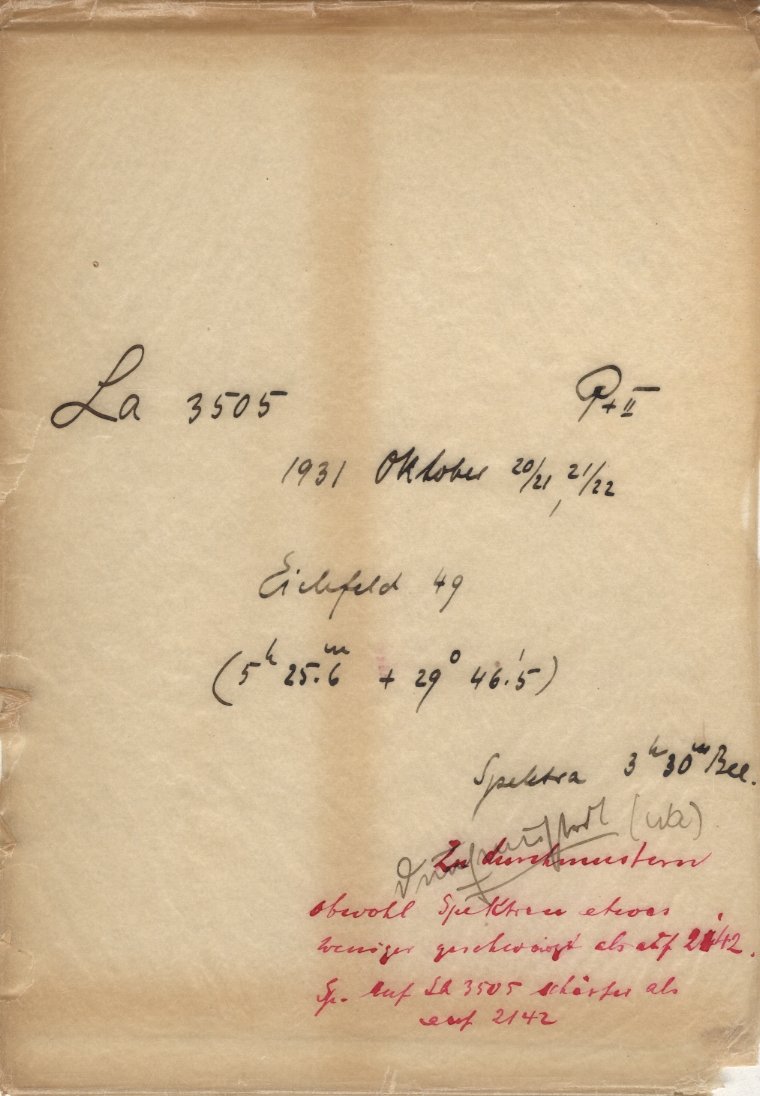 La 3505 P+II
1931 Oktober 20/21, 21/22
Eichfeld 49
(5h 25.m6 + 29° 46.'5)
Spektra 3h 30m Bel.
(Wa)
Zu durchmustern
obwohl Spektren etwas
weniger geschwärzt als auf 2142.
Sp. auf La 3505 schärfer als
auf 2142